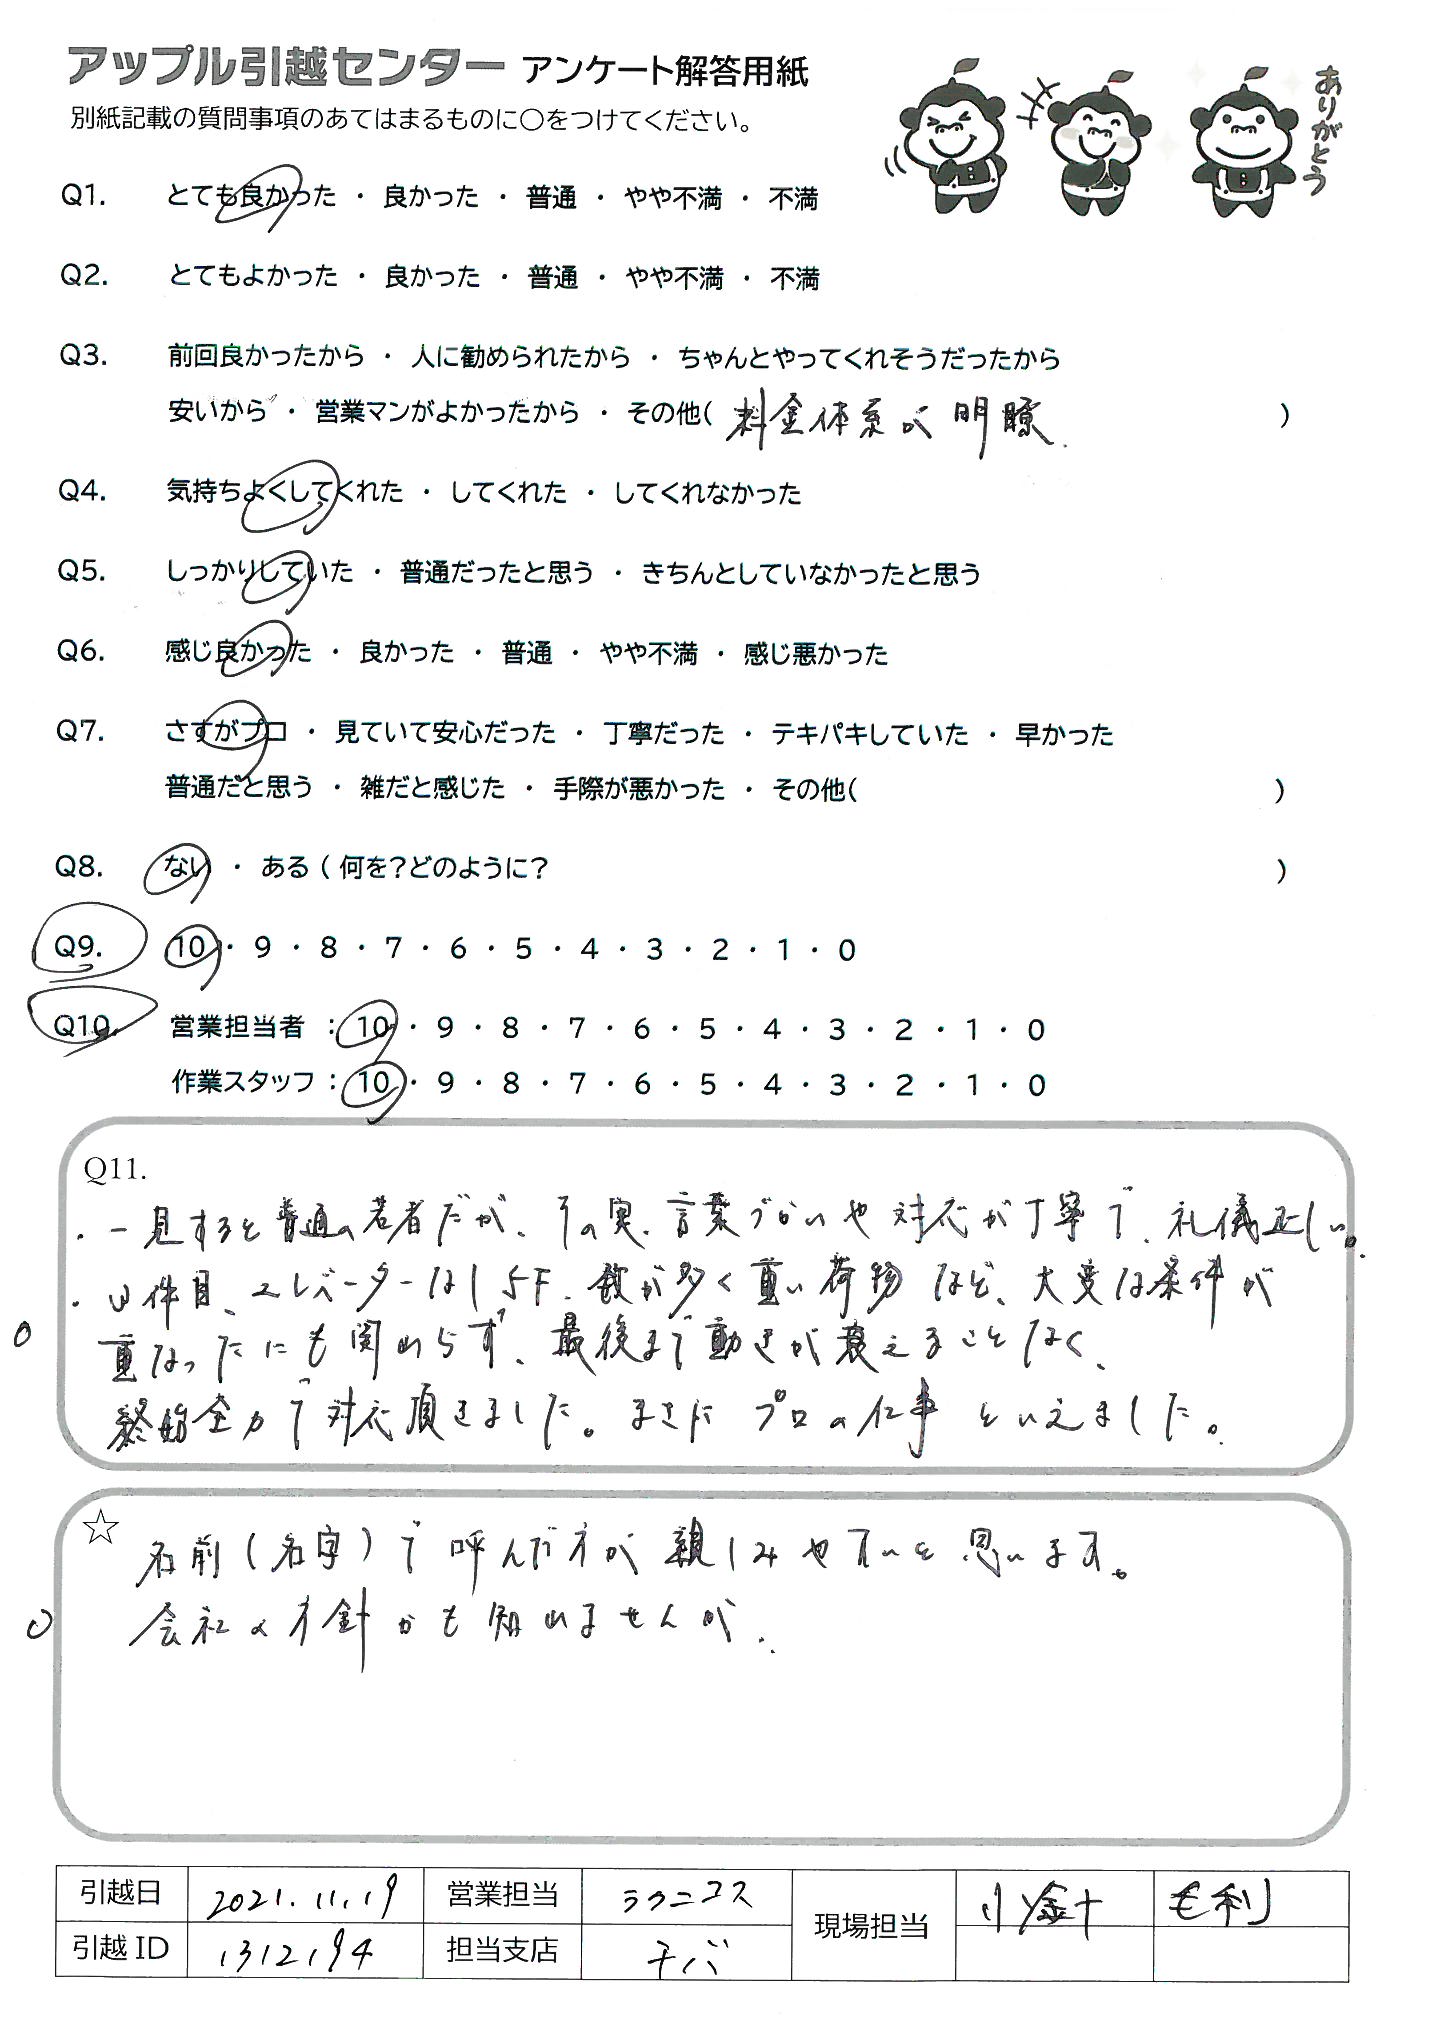 アップル引越センター アンケート解答用紙
別紙記載の質問事項のあてはまるものに○をつけてください。
ありがとう
Q1. とても良かった ・ 良かった ・ 普通 ・ やや不満 ・ 不満
Q2. とてもよかった ・ 良かった ・ 普通 ・ やや不満 ・ 不満
Q3. 前回良かったから ・ 人に勧められたから ・ ちゃんとやってくれそうだったから
安いから ・ 営業マンがよかったから ・ その他( 料金体系が明瞭. )
Q4. 気持ちよくしてくれた ・ してくれた ・ してくれなかった
Q5. しっかりしていた ・ 普通だったと思う ・ きちんとしていなかったと思う
Q6. 感じ良かった ・ 良かった ・ 普通 ・ やや不満 ・ 感じ悪かった
Q7. さすがプロ ・ 見ていて安心だった ・ 丁寧だった ・ テキパキしていた ・ 早かった
普通だと思う ・ 雑だと感じた ・ 手際が悪かった ・ その他( )
Q8. ない ・ ある ( 何を?どのように? )
Q9. 10 ・ 9 ・ 8 ・ 7 ・ 6 ・ 5 ・ 4 ・ 3 ・ 2 ・ 1 ・ 0
Q10. 営業担当者 : 10 ・ 9 ・ 8 ・ 7 ・ 6 ・ 5 ・ 4 ・ 3 ・ 2 ・ 1 ・ 0
作業スタッフ : 10 ・ 9 ・ 8 ・ 7 ・ 6 ・ 5 ・ 4 ・ 3 ・ 2 ・ 1 ・ 0
Q11.
・一見すると普通の若者だが、その実、言葉づかいや対応が丁寧で、礼儀正しい。
・件目、エレベーターなし5F、数が多く重い荷物など、大変な条件が
重なったにも関わらず、最後まで動きが衰えることなく、
終始全力で対応頂きました。まさにプロの仕事といえました。
☆
名前(名字)で呼んだ方が親しみやすいと思います。
会社の方針かも知れませんが..
引越日 2021.11.19 営業担当 ラクニコス 現場担当 小金十 毛利
引越ID 1312194 担当支店 チバ